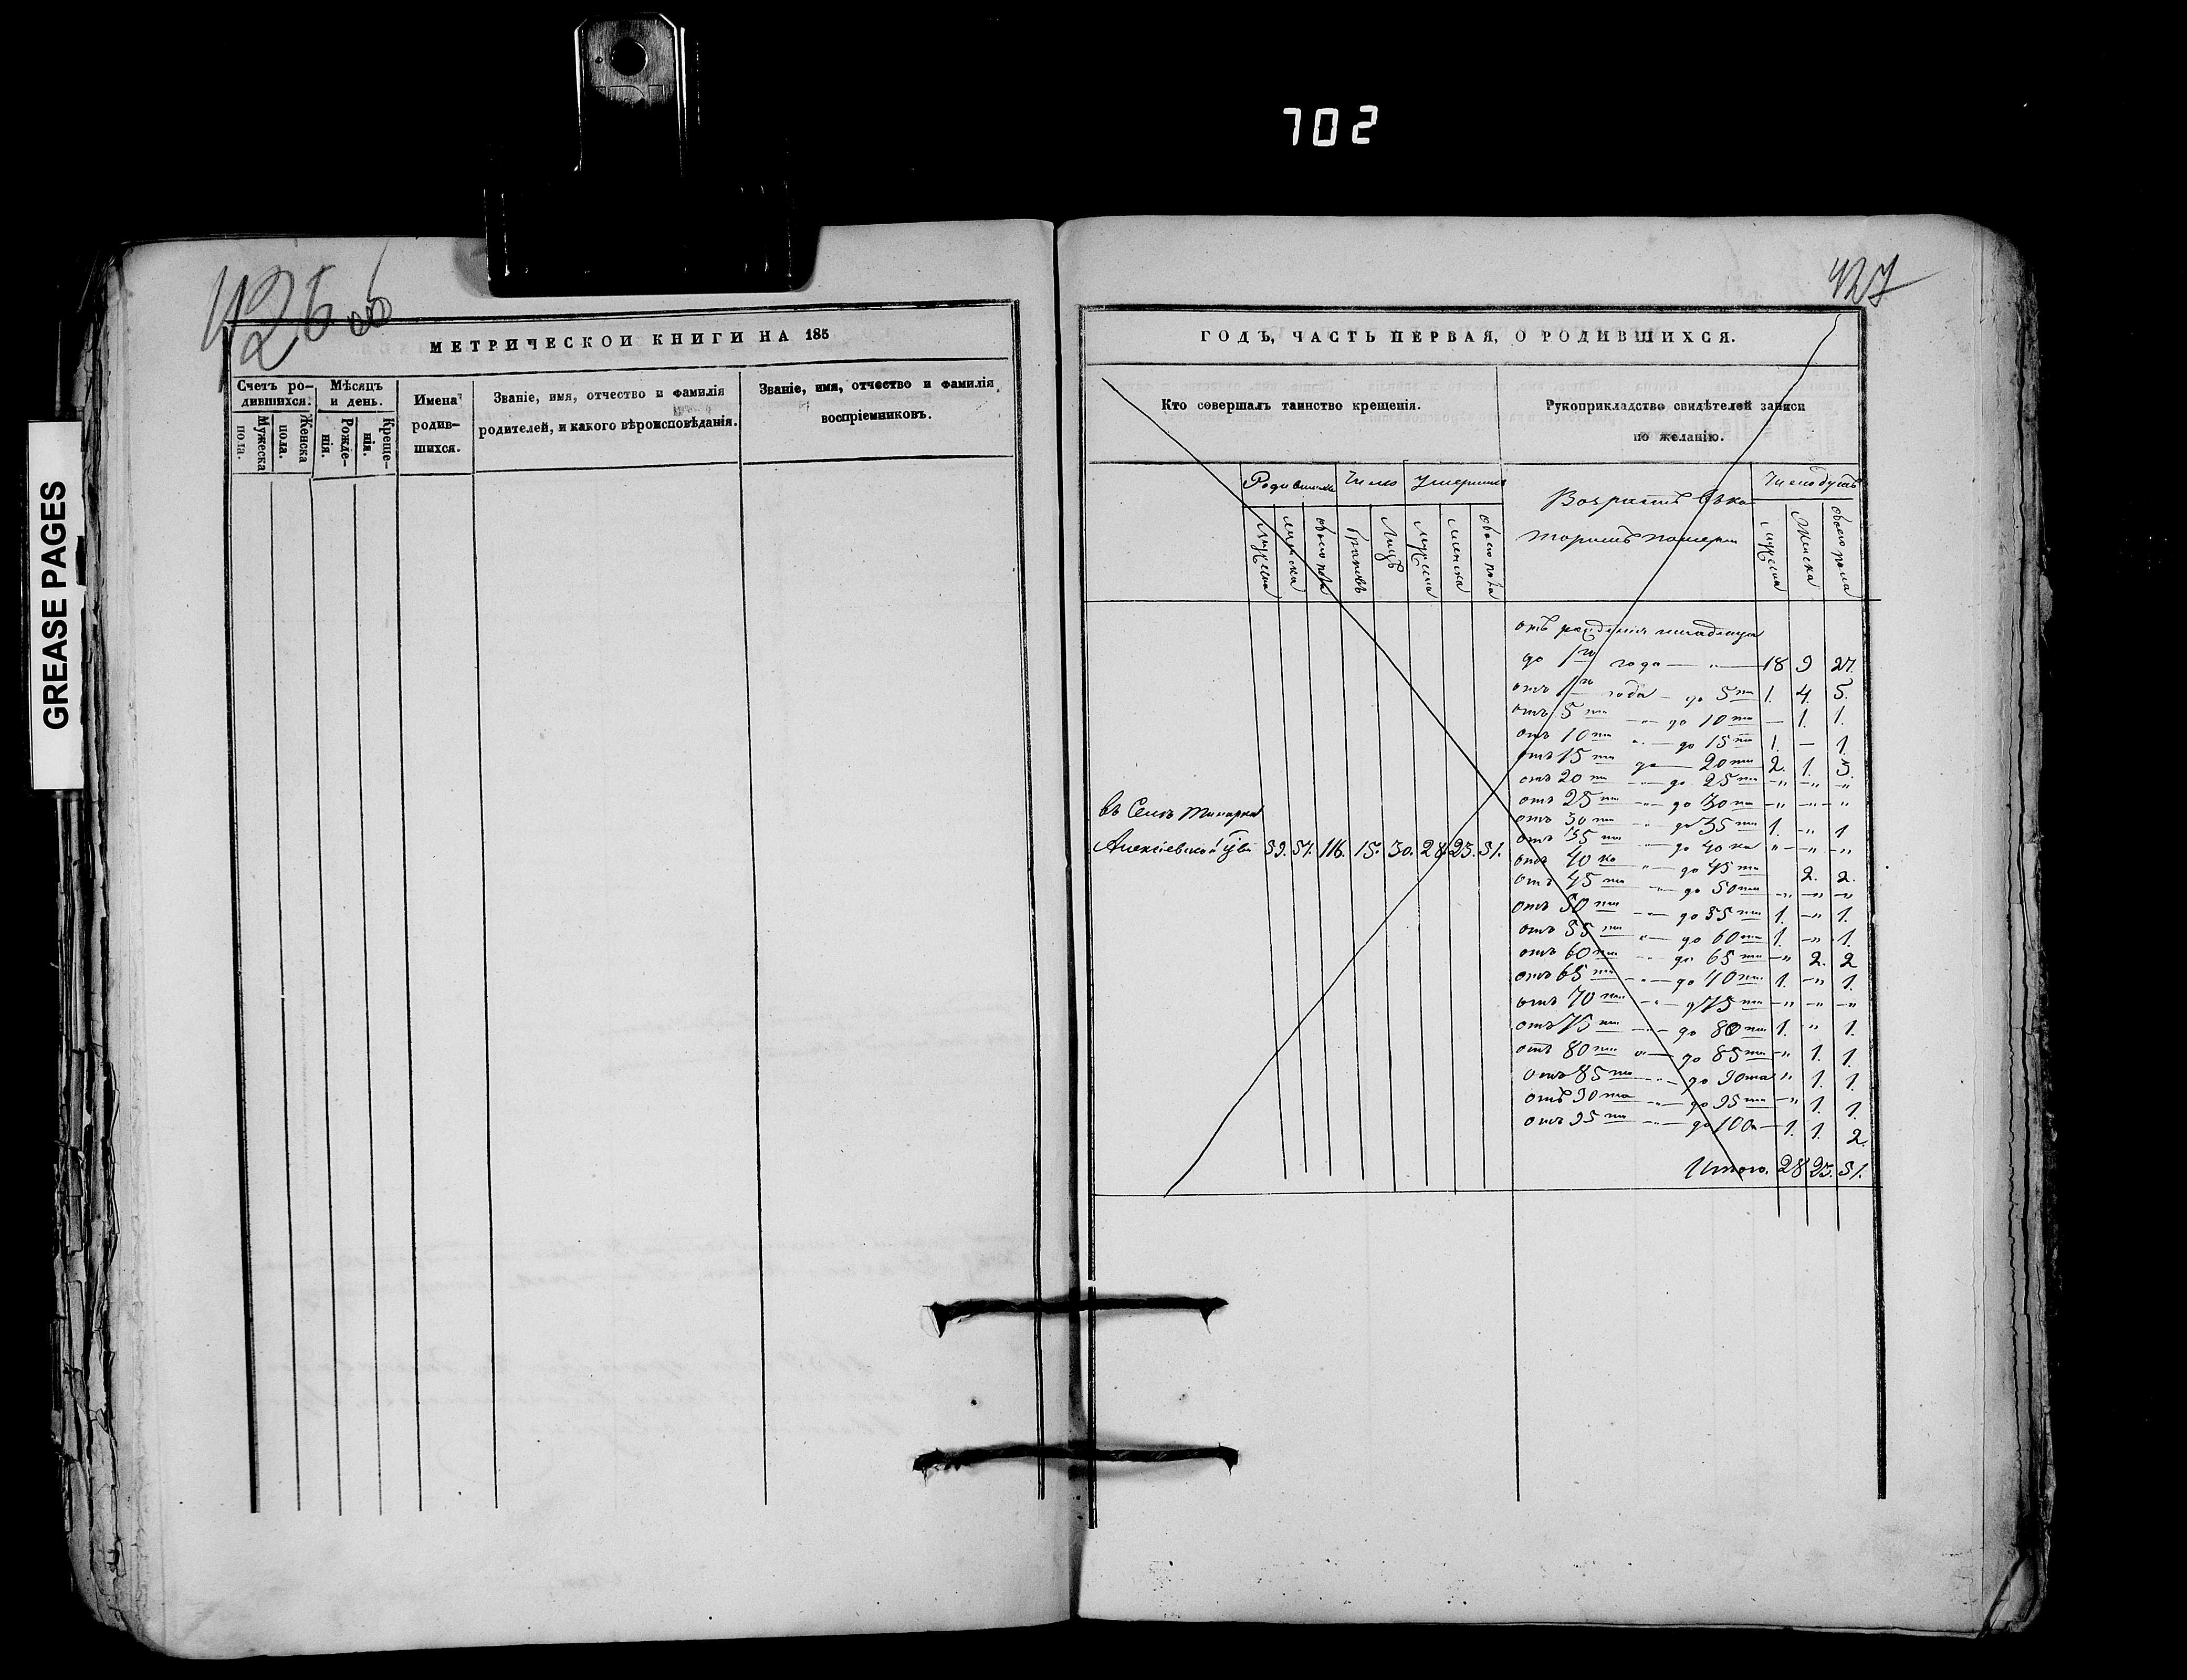 702
GREASE PAGES
426 об
МЕТРИЧЕСКОЙ КНИГИ НА 185
Счетъ ро-
дившихся.
Мужеска
пола.
Женска
пола.
Мѣсяцъ
и день.
Рожде-
нія.
Креще-
нія.
Имена
родив-
шихся.
Званіе, имя, отчество и фамилія
родителей, и какого вѣроисповѣданія.
Званіе, имя, отчество и фамилія
воспріемниковъ.
427
ГОДЪ, ЧАСТЬ ПЕРВАЯ, О РОДИВШИХСЯ.
Кто совершалъ таинство крещенія.
Рукоприкладство свидѣтелей записи
по желанію.
Родившихся Число Умершихъ
мужеска женска обоего пола браковъ Лицъ мужеска женска обоего пола
Возрастъ въ ко
торомъ померли
Число душъ
мужеска женска обоего пола
въ Селѣ
Алексіевской 59. 57. 116. 15. 30. 28. 23. 51.
отъ рожденія младенцы
до 1го года — „ — 18 9 27.
отъ 1го года — до 5ти 1. 4. 5.
отъ 5ти — „ — до 10ти — 1. 1.
отъ 10ти „ — до 15ти 1. — 1.
отъ 15ти до — 20ти 2. 1. 3.
отъ 20ти — „ — до 25ти — „ — „ — „
отъ 25ти — „ — до 30ти — „ — „ — „
отъ 30ти „ до 35ти 1. — „ 1
отъ 35ти — до 40ка „ — „ — „
отъ 40ка „ — до 45ти 2. 2.
отъ 45ти — „ — до 50ти — „ — „ — „
отъ 50ти — „ — до 55ти 1. — „ 1.
отъ 55ти „ — до 60ти 1. — „ 1.
отъ 60ти — „ до 65ти — „ 2. 2
отъ 65ти — „ — до 70ти 1. — „ 1.
отъ 70ти — „ — до 75ти — „ — „ — „
отъ 75ти — „ — до 80ти 1. „ 1.
отъ 80ти „ — до 85ти — „ 1. 1.
отъ 85ти — „ — до 90та „ 1. 1.
отъ 90та — „ — до 95ти — „ 1. 1.
отъ 95ти — „ — до 100а — 1. 1. 2.
Итого. 28 23. 51.